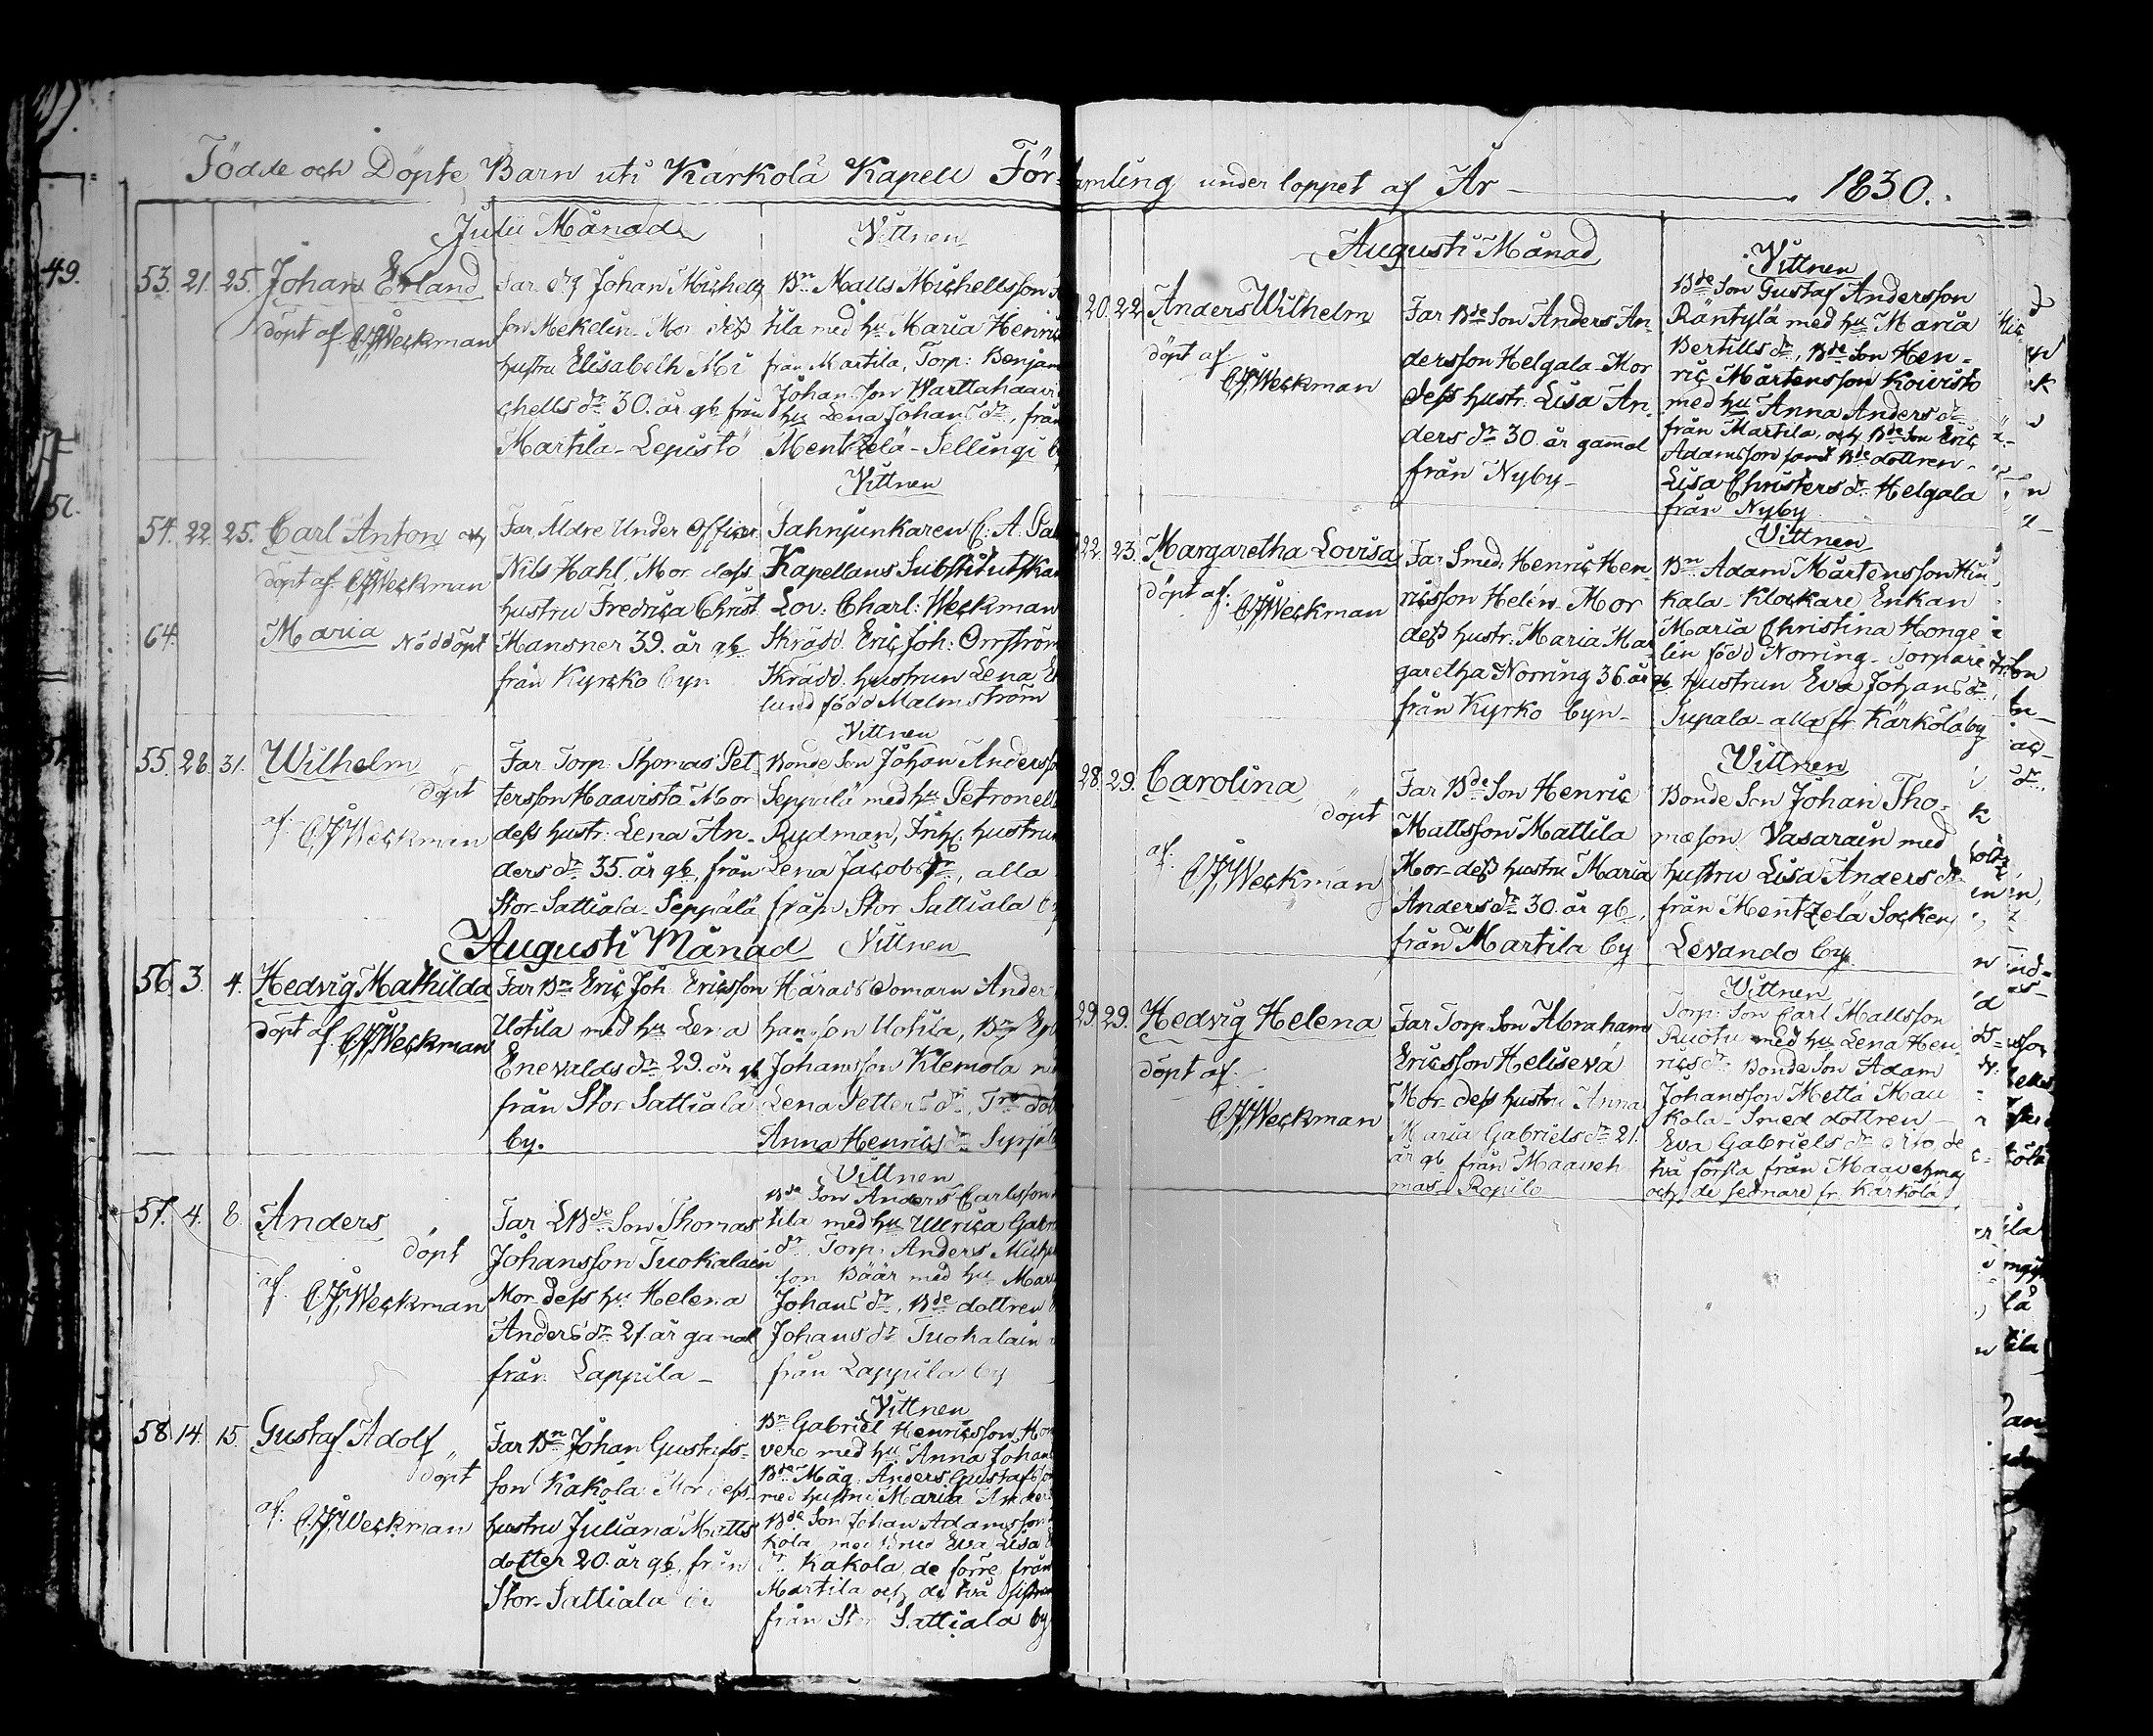 Födde och Döpte Barn uti Kärkola Kapell För-
Julii Månad
Vittnen
53. 21. 25. Johan Erland
döpt af CJWeckman
Far Johan Michells
son Mekelin Mor dess
hustru Elisabeth Mi
chells dr 30. år gb från
Martila-Lepistö
Bn Matts Michellsson
tila med hu Maria Henric
från Martila, Torp: Benjam
Johan Son Warttahaavi
hu Lena Johans dr, från
Mentzelä-Sellingi
Vittnen
54. 22. 25. Carl Anton och
döpt af CJWeckman
64. Maria Nöddöpt
Far Äldre Under Officer
Nils Hahl, Mor dess
hustru Fredrica Christ
Hansner 39. år gb
från Kyrcko byn
Fahnjunkaren C: A.
Kapellans Substitutskan
Lov: Charl: Weckman
Skrädd. Eric Joh: Orrström
Skrädd. hustrun Lena
lund född Malmström
Vittnen
55. 28. 31. Wilhelm
döpt
af: CJWeckman
Far Torp. Thomas Pet
tersson Haavisto Mor
dess hustr: Lena An-
ders dr 35. år gb, från
Stor Sattiala-Seppälä
Bonde Son Johan Andersso
Seppälä med hu Petronell
Rydman, Inh: hustrun
Lena Jacobs dr, alla
från Stor Sattiala
Augusti Månad Vittnen
56. 3. 4. Hedvig Mathilda
döpt af CJWeckman
Far Bn Eric Joh Ericsson
Uotila med hu Lena
Enevalds dr 29. år gb
från Stor Sattiala
by.
Härads Domarn Ander
hansson Uotila, Bn
Johansson Klemola
Lena Petters dr,
Anna Henrics dr
Vittnen
57. 4. 8. Anders
döpt
af. CJWeckman
Far Bde Son Thomas
Johansson Tuokalain
Mor dess hu Helena
Anders dr 21. år gamal
från Lappila-
Bde Son Anders Carlsson
tila med hu Ullrica Gabri
dr Torp: Anders Mich
son Bäär med hu Mar
Johans dr, Bde dottren
Johans dr Tuokalain
från Lappila by
Vittnen
58. 14. 15. Gustaf Adolf
döpt
af: CJWeckman
Far Bn Johan Gustafs-
son Kakola Mor dess
hustru Juliana Matts
dotter 20. år gb, från
Stor-Sattiala
Bn Gabriel Henricsson
vero med hu Anna Johan
Bde Måg: Anders Gustafsson
med hustru Maria Anders
Bde Son Johan Adamsson
kola med Brud Eva Lisa
dr Kakola, de förre från
Martila och de två sistnäm
från Stor Sattiala by
amling under loppet af År 1830.
Augusti Månad
Vittnen
20. 22 Anders Wilhelm
döpt af:
CJWeckman
Far Bde Son Anders An-
dersson Helgala-Mor
dess hustr. Lisa An-
ders dr 30. år gammal
från Nyby-
Bde Son Gustaf Andersson
Räntylä med hu Maria
Bertills dr, Bde Son Hen-
ric Mårtensson Koivisto
med hu Anna Anders dr
från Martila, och Bde Son Eric
Adamsson samt Bde dottren-
Lisa Christers dr Helgala
från Nyby
Vittnen
22. 23. Margaretha Lovisa
döpt af:
CJWeckman
Far Smed Henric Hen-
ricsson Helén-Mor
dess hustr: Maria Mar-
garetha Norring 36. år gb
från Kyrko byn-
Bn Adam Mårtensson Hui
kala-Klockare Enkan
Maria Christina Honge
lin född Norring-Sornare
hustrun Eva Johans dr
Supala-alla fr. Kärkölä by
Vittnen
28. 29. Carolina
döpt
af:
CJWeckman
Far Bde Son Henric
Mattsson Mattila
Mor-dess hustru Maria
Anders dr 30. år gb,
från Martila by
Bonde Son Johan Tho-
mæson Vasarain med
hustru Lisa Anders dr
från Mentzelä Socken
Levando by.
Vittnen
29. 29. Hedvig Helena
döpt af:
CJWeckman
Far Torp: Son Abraham
Ericsson Helisevä
Mor dess hustru Anna
Maria Gabriels dr 21.
år gb från Maaveh
mas-Ropilo
Torp: Son Carl Mattsson
Ruotu med hu Lena Hen
rics dr Bonde Son Adam
Johansson Mettä Mau
kola-Smed dottren-
Eva Gabriels dr de
två första från Maavehmas
och de sednare fr. Kärkölä